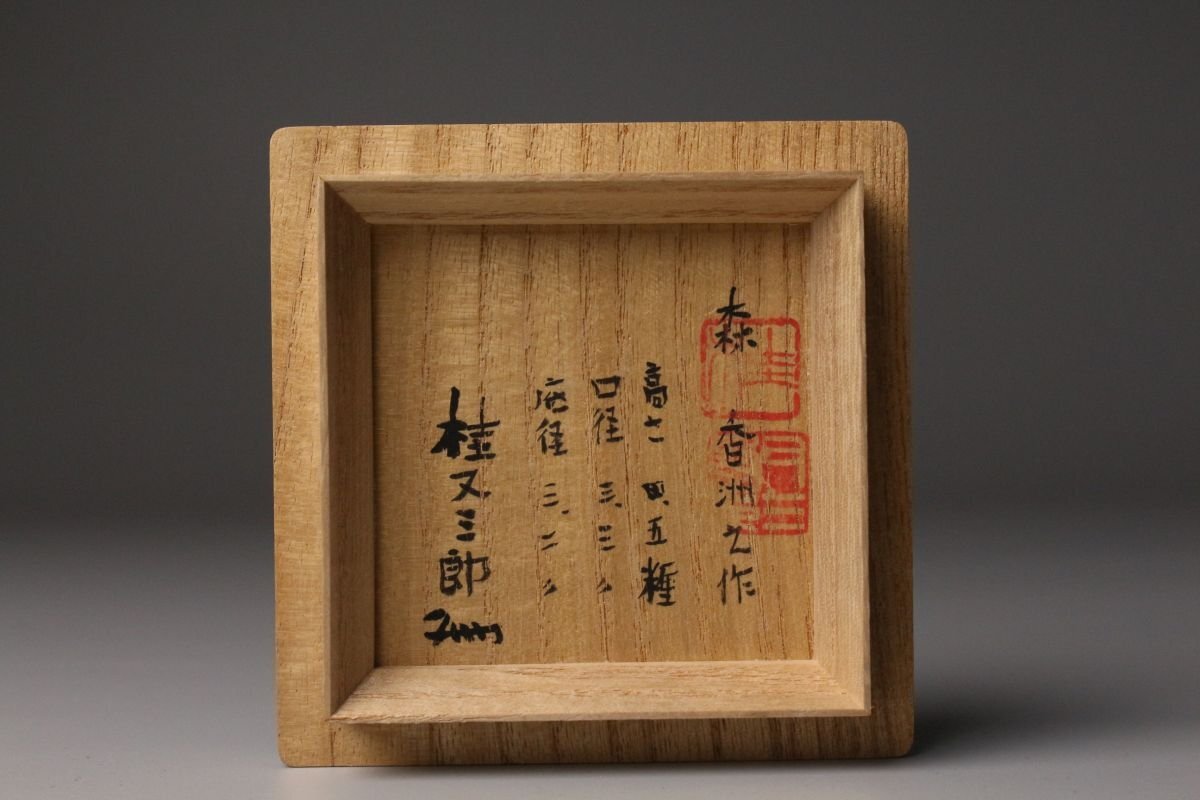 森 香洲之作
高さ 四、五糎
口径 三、三〃
底径 三、二〃
桂又三郎